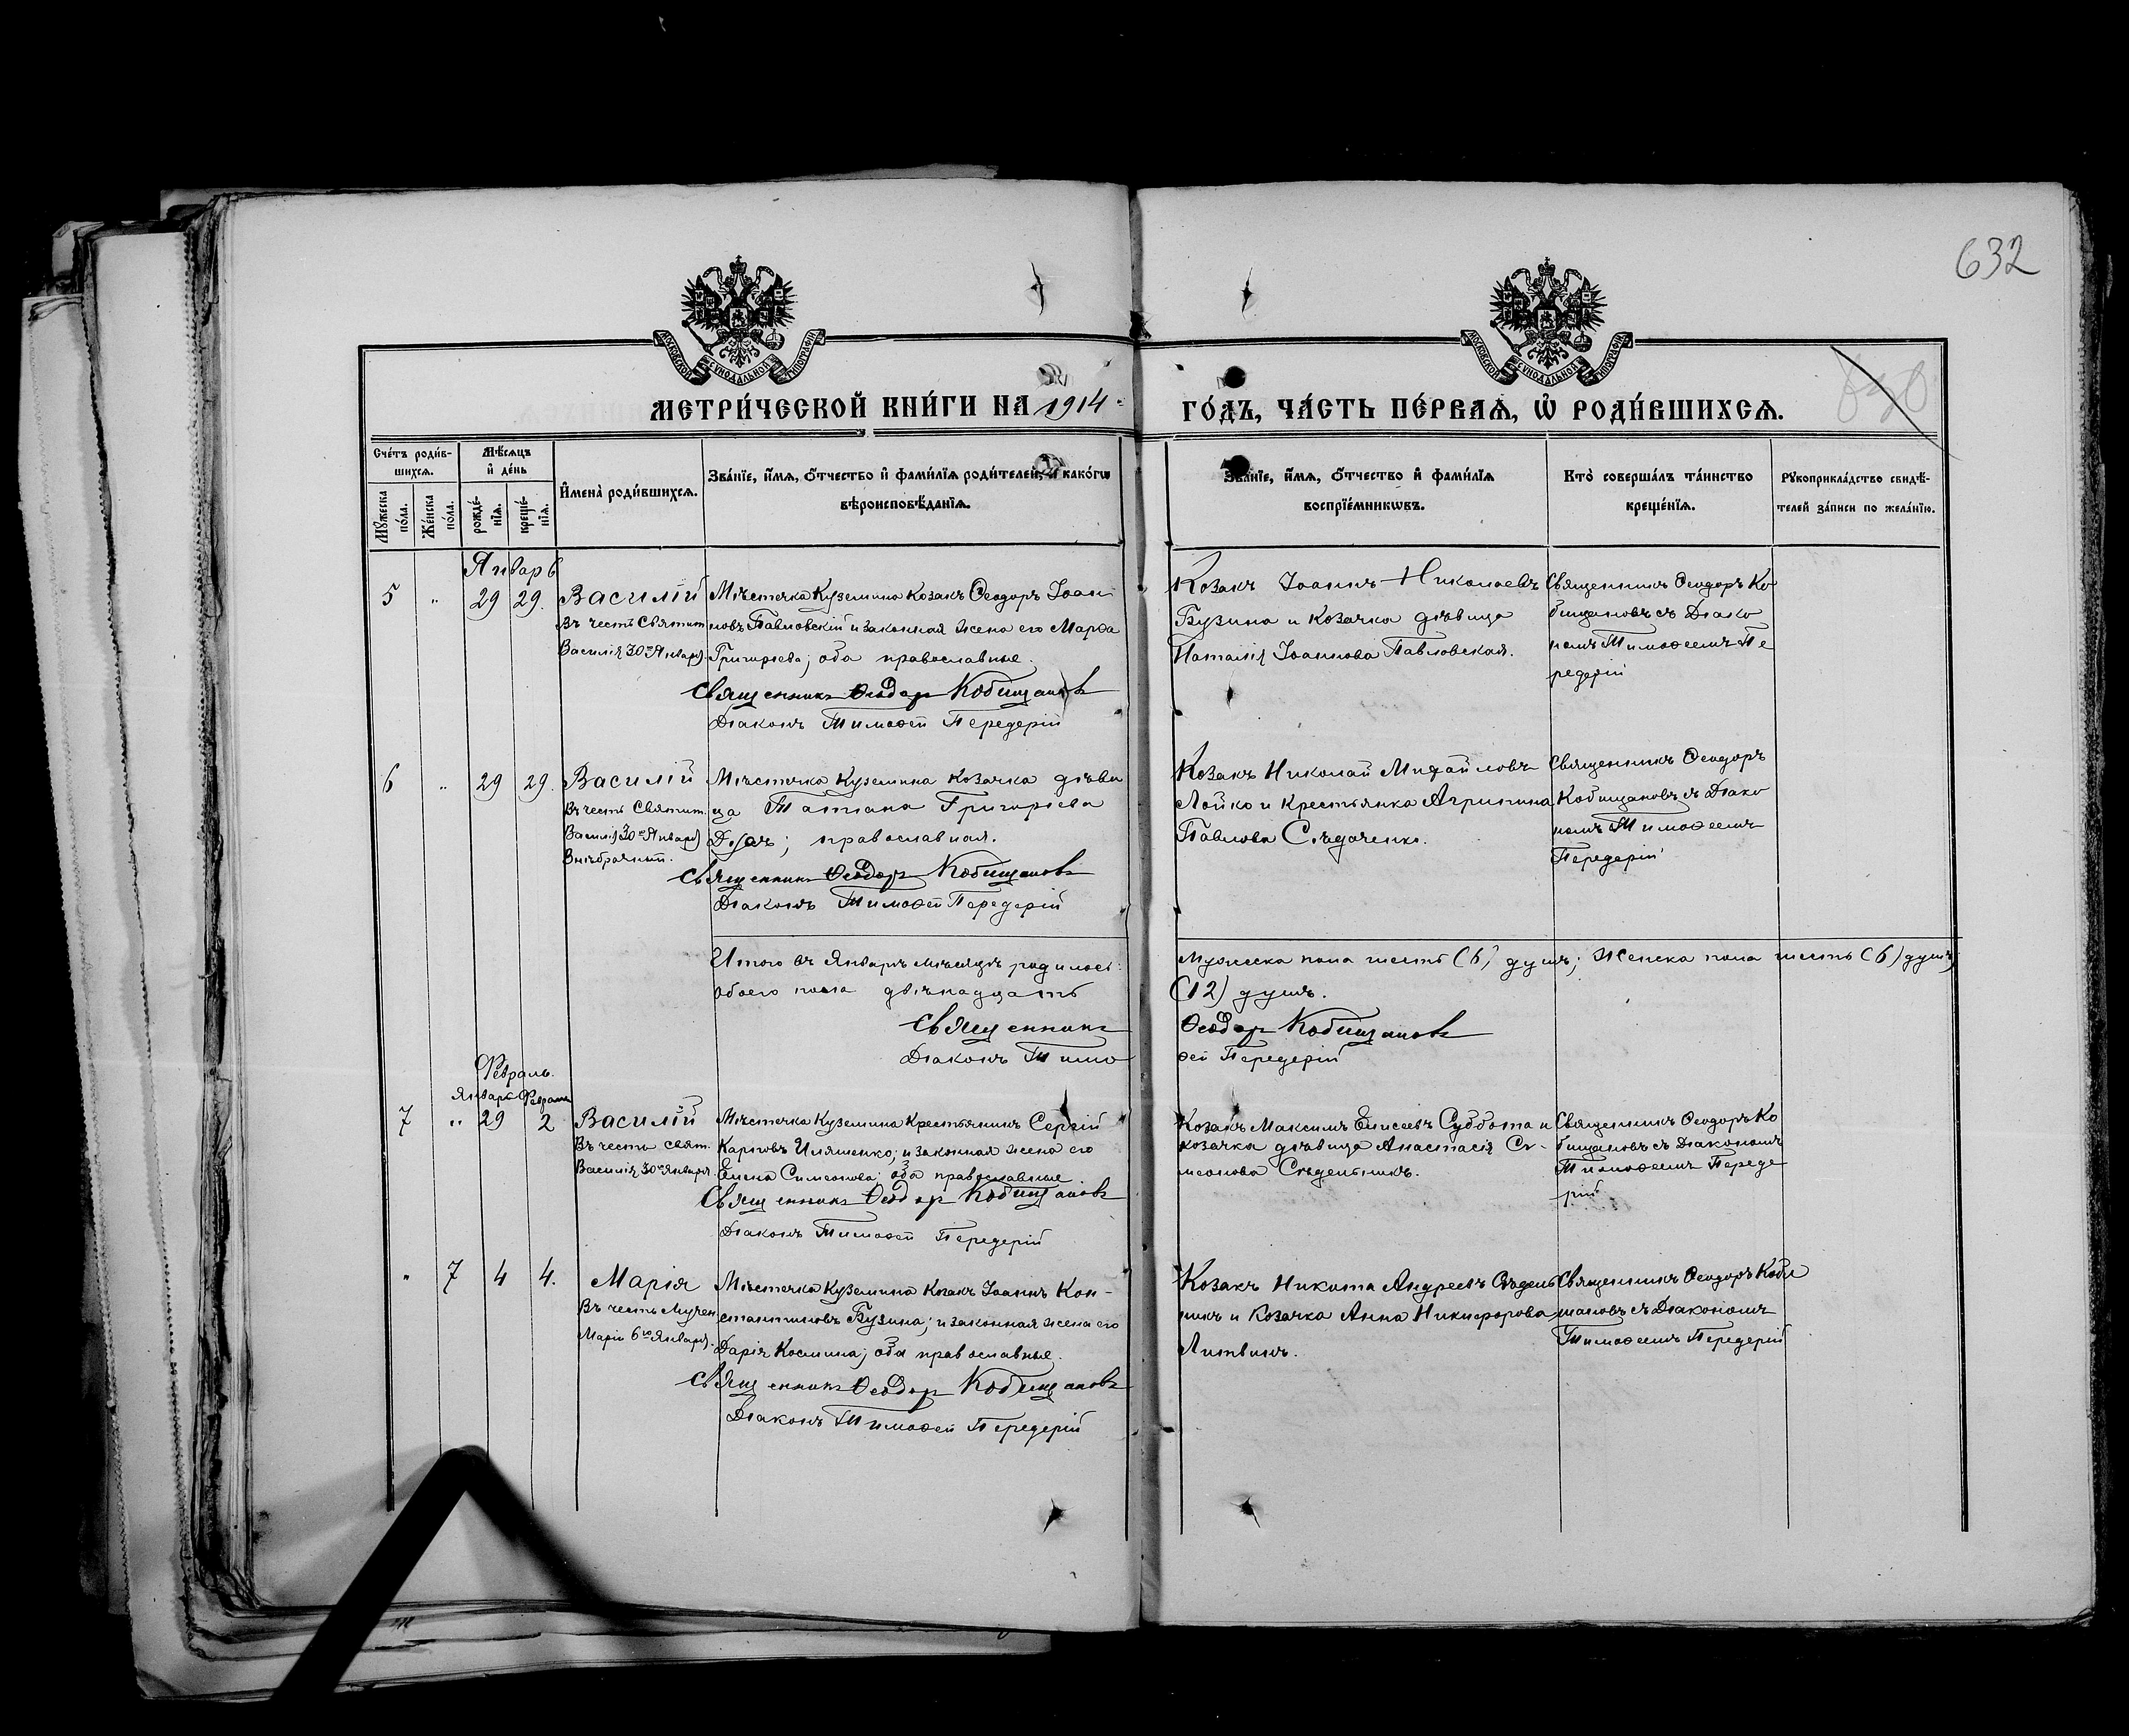 632
МОСКОВСКОЙ СѴНОДАЛЬНОЙ ТИПОГРАФІИ
МОСКОВСКОЙ СѴНОДАЛЬНОЙ ТИПОГРАФІИ
МЕТРИ́ЧЕСКОЙ КНИ́ГИ НА 1914
ГО́ДЪ, ЧА́СТЬ ПЕ́РВАѦ, Ѡ҆ РОДИ́ВШИХСѦ.
Сче́тъ роди́в-
шихсѧ.
Мѣ́сѧцъ
и҆ де́нь
Мꙋ́жеска
по́ла.
Же́нска
по́ла.
рожде́-
нїѧ.
креще́-
нїѧ.
И҆мена̀ роди́вшихсѧ.
Зва́нїе, и҆́мѧ, ѻ҆́тчество и҆ фами́лїѧ роди́телей, и҆ како́гѡ
вѣроисповѣ́данїѧ.
Зва́нїе, и҆́мѧ, ѻ҆́тчество и҆ фами́лїѧ
воспрїе́мникѡвъ.
Кто̀ соверша́лъ та́инство
креще́нїѧ.
Рꙋкоприкла́дство свидѣ́-
телей за́писи по жела́нїю.
Январь
5 " 29 29. Василій
Въ честь Святит.
Василія 30го Января.
Мѣстечка Куземина Козакъ Ѳеодоръ Іоан
новъ Павловскій и законная жена его Марѳа
Григорьева; оба православные.
Священникъ Ѳеодоръ Кобищановъ
Діаконъ Тимоѳей Передерій
Козакъ Іоаннъ Николаевъ
Бузина и Козачка дѣвица
Наталія Іоаннова Павловская.
Священникъ Ѳеодоръ Ко
бищановъ съ Діако
номъ Тимоѳеемъ Пе
редерій
6 " 29 29. Василій
Въ честь Святит.
Василія 30го Января
Внѣбрачный.
Мѣстечка Куземина Козачка дѣви
ца Татіана Григорьева
православная.
Священникъ Ѳеодоръ Кобищановъ
Діаконъ Тимоѳей Передерій
Козакъ Николай Михайловъ
Лойко и Крестьянка Агрипина
Павлова Слѣдаченко.
Священникъ Ѳеодоръ
Кобищановъ съ Діако
номъ Тимоѳеемъ
Передерій
Итого въ Январѣ мѣсяцѣ родилось:
Мужеска пола шесть (6) душъ; Женска пола шесть (6) душъ;
обоего пола двѣнадцать
(12) душъ.
Священникъ
Ѳеодоръ Кобищановъ
Діаконъ Тимо
ѳей Передерій
Февраль.
Январь Февраль
7 " 29 2 Василій
Въ честь свят.
Василія 30го Января.
Мѣстечка Куземина Крестьянинъ Сергій
Карповъ Ильяшенко; и законная жена его
Елена Симеонова; оба православные
Священникъ Ѳеодоръ Кобищановъ
Діаконъ Тимоѳей Передерій
Козакъ Максимъ Елисеевъ Суббота и
козачка дѣвица Анастасія Си-
меонова Слѣдельникъ.
Священникъ Ѳеодоръ Ко
бищановъ съ Діакономъ
Тимоѳеемъ Переде
рій
" 7 4 4. Марія
Въ честь Мучен.
Маріи 6го Января.
Мѣстечка Куземина Козакъ Іоаннъ Кон-
стантиновъ Бузина; и законная жена его
Дарія Космина; оба православные.
Священникъ Ѳеодоръ Кобищановъ
Діаконъ Тимоѳей Передерій
Козакъ Никита Андреевъ Слѣдель
никъ и Козачка Анна Никифорова
Литвинъ.
Священникъ Ѳеодоръ Коби
щановъ съ Діакономъ
Тимоѳеемъ Передерій